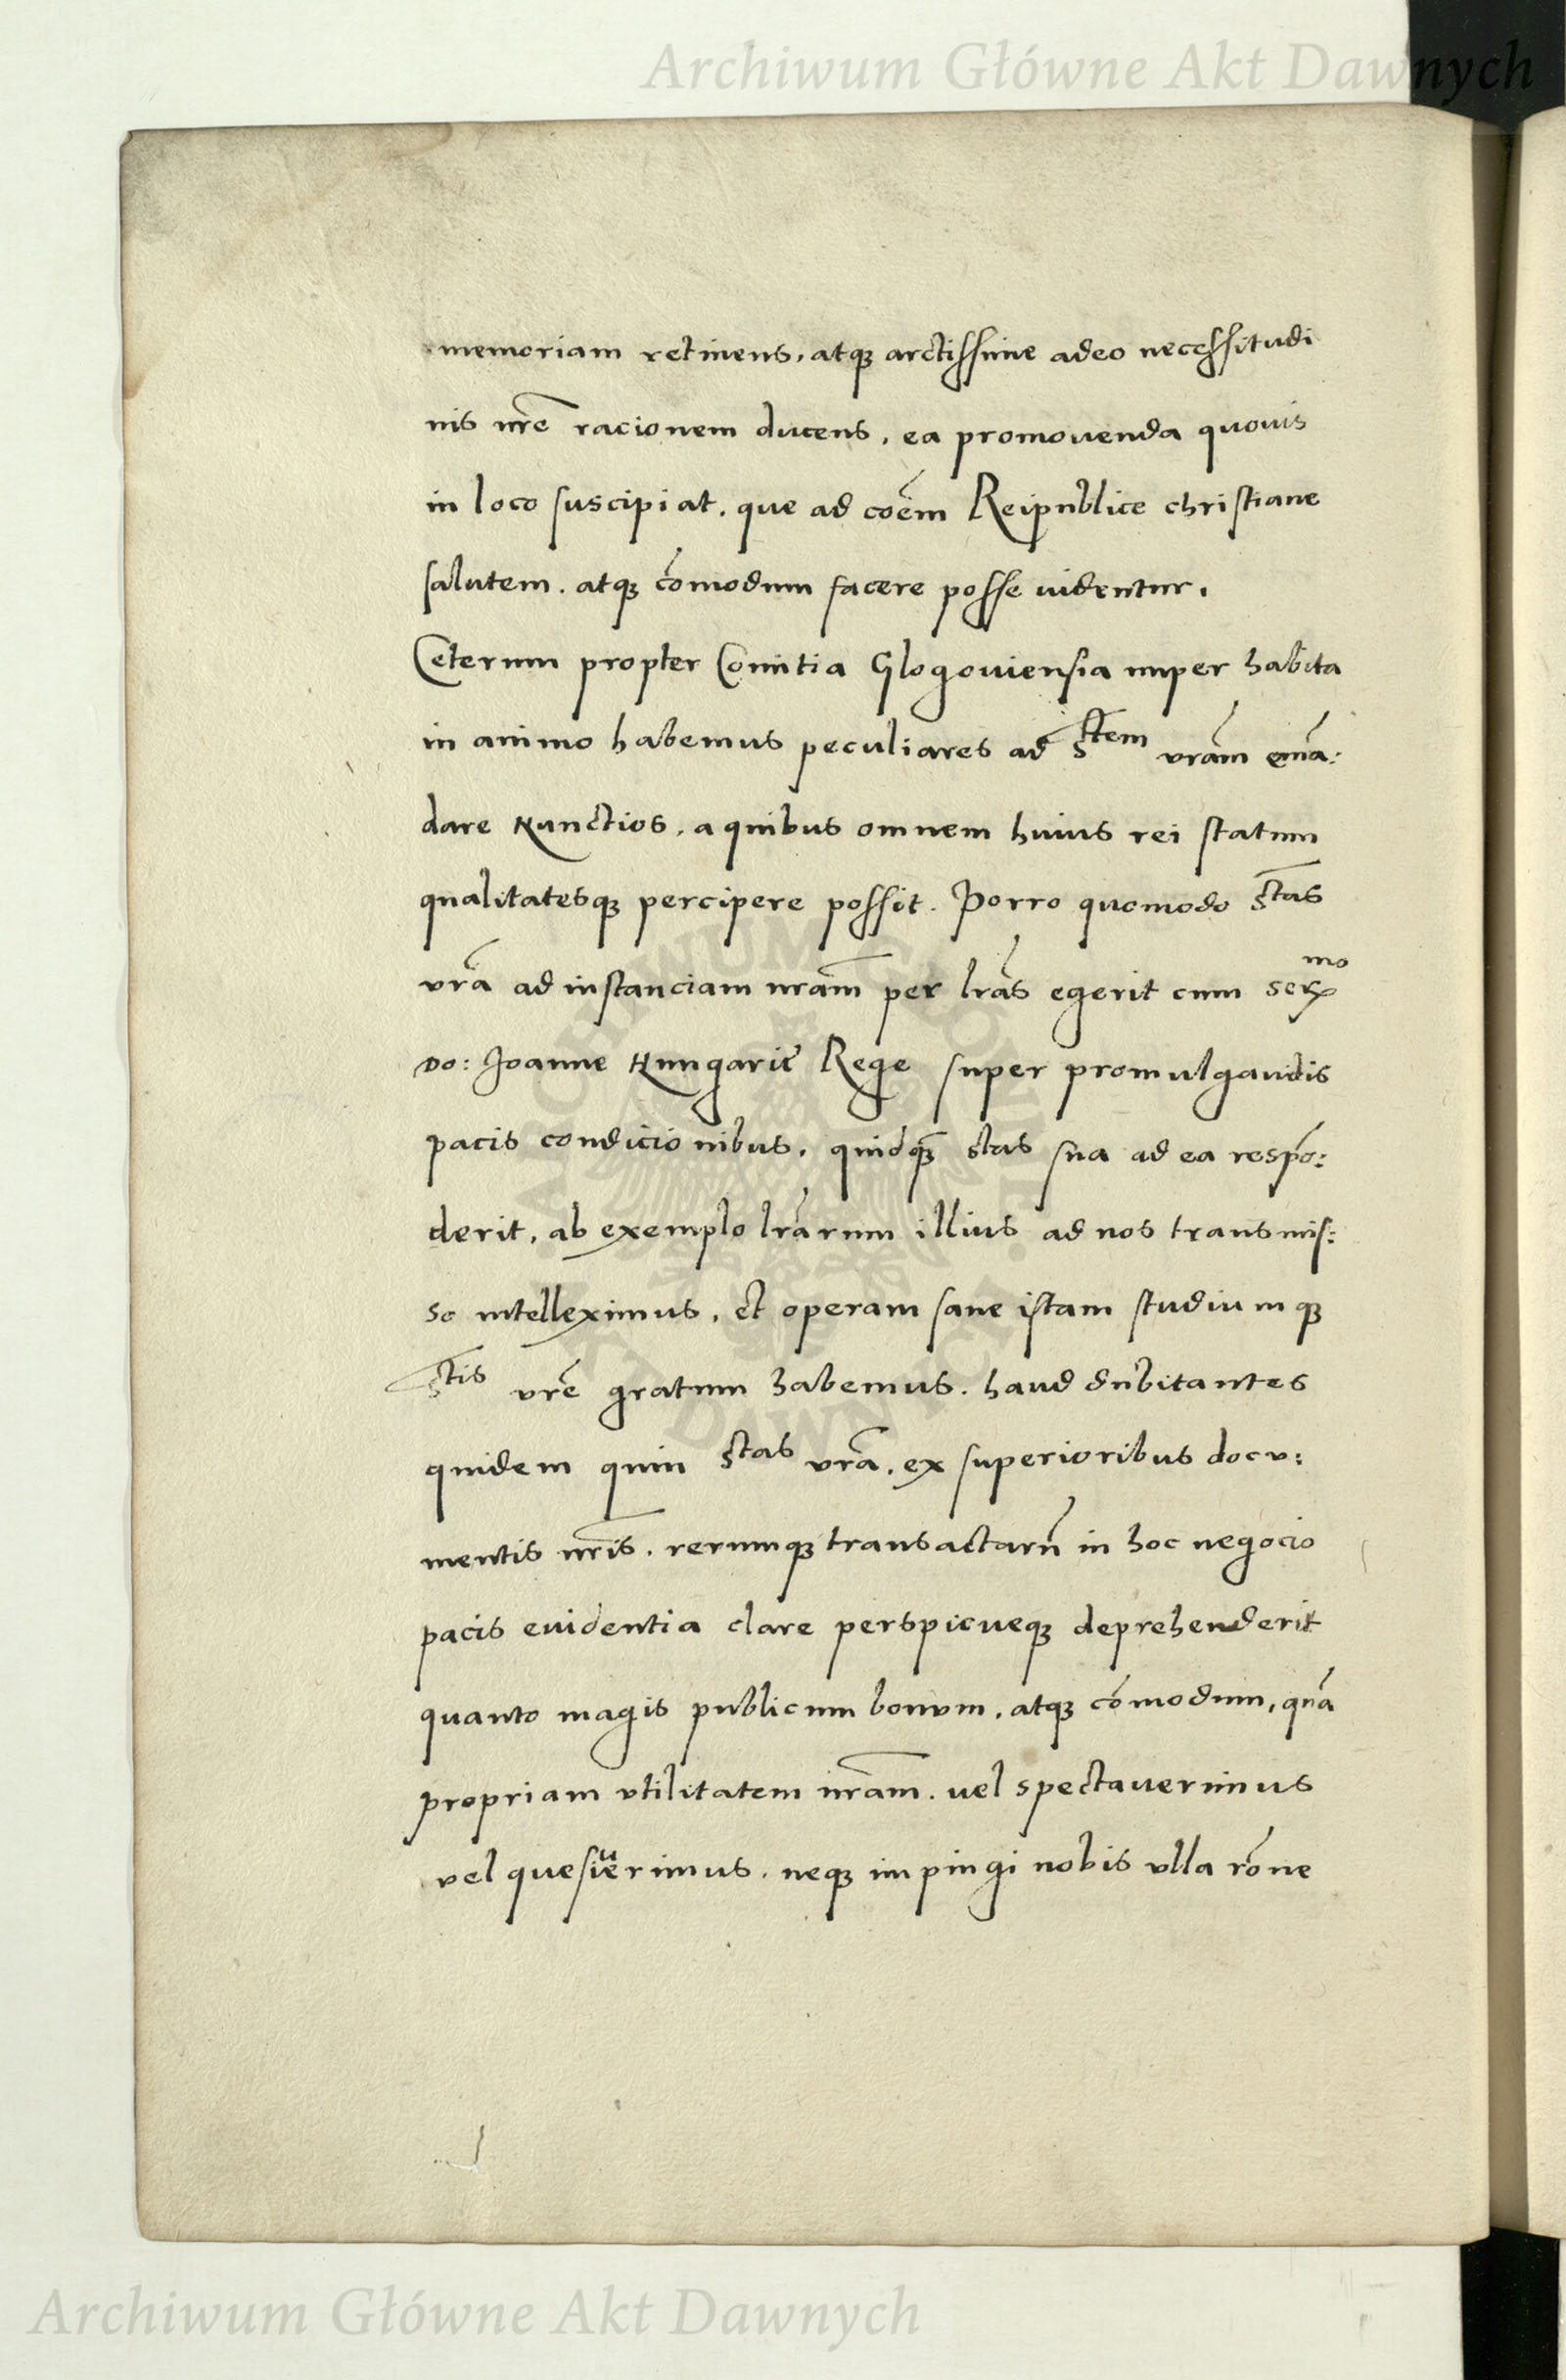 Archiwum Główne Akt Dawnych
memoriam retinens, atqꝫ arctissime adeo necessitudi
nis nr̃e racionem ducens, ea promouenda quouis
in loco suscipiat, que ad coẽm Reipublice christiane
salutem, atqꝫ cõmodum facere posse uidentur.
Ceterum propter Comitia Glogouiensia nuper habita
in animo habemus peculiares ad Sᵗᵉᵐ vr̃am emã:
dare Nunctios, a quibus omnem huius rei statum
qualitatesqꝫ percipere possit. Porro quomodo Sᵗᵃˢ
vr̃a ad instanciam nr̃am per lr̃as egerit cum serᵐᵒ
do: Joanne Hungarie Rege super promulgandis
pacis condicionibus, quidqꝫ stas sua ad ea respõ:
derit, ab exemplo lr̃arum illius ad nos transmis:
so intelleximus, et operam sane istam studiumqꝫ
Sᵗⁱˢ vr̃e gratum habemus, haud dubitantes
quidem quin Sᵗᵃˢ vr̃a, ex superioribus docu:
mentis nr̃is, rerumqꝫ transactarũ in hoc negocio
pacis euidentia clare perspicueqꝫ deprehenderit
quanto magis publicum bonum, atqꝫ cõmodum, quã
propriam vtilitatem nr̃am, uel spectauerimus
vel quesiuerimus, neqꝫ impingi nobis vlla rõne
Archiwum Główne Akt Dawnych